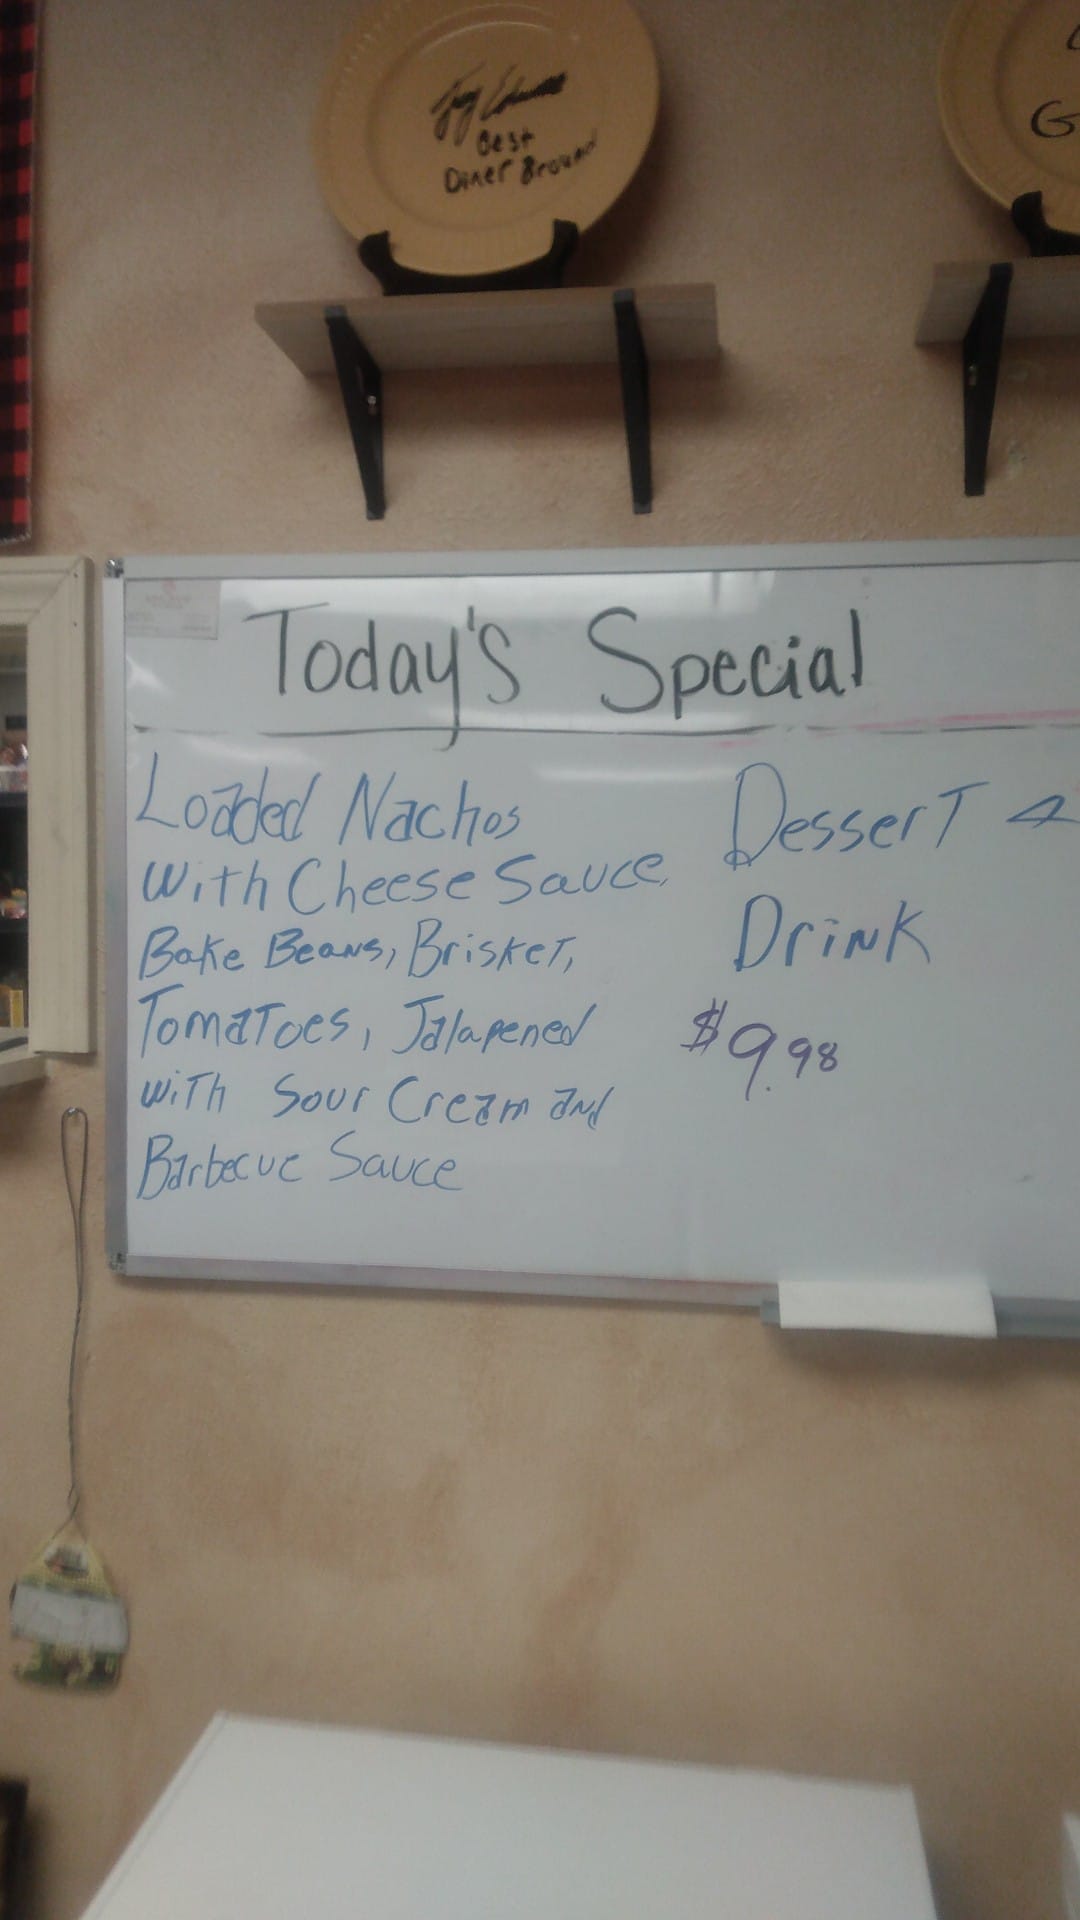 Best
Diner Around
G
Today's Special
Loaded Nachos
with Cheese Sauce,
Bake Beans, Brisket,
Tomatoes, Jalapened
with Sour Cream and
Barbecue Sauce
Dessert &
Drink
$9.98